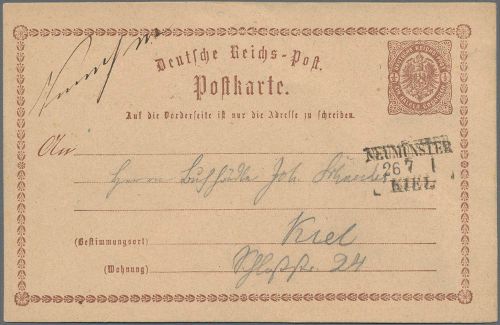 Deutsche Reichs-Post.
Postkarte.
Auf die Vorderseite ist nur die Adresse zu schreiben.
An
NEUMÜNSTER
26 7 I
KIEL
Herrn Joh.
Kiel
(Bestimmungsort)
Schloßstr. 24
(Wohnung)